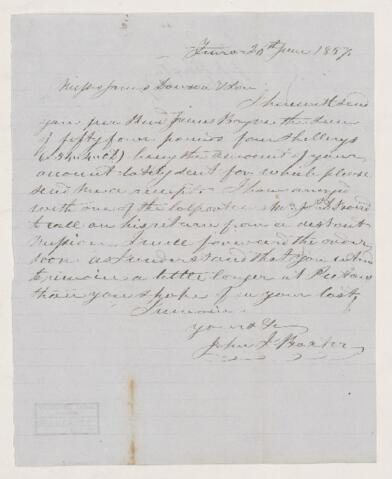 Truro 20th June 1857
Messrs James Dawson & Son
I herewith send
you per Revd James the sum
of fifty four pounds four shillings
being the amount of your
account lately sent for which please
send me a receipt. I have arranged
with one of the colporteurs Mr
to call on his return from a distant
mission I will forward the
soon as I understand that you intend
to remain a little longer at Pictou
than you spoke of in your last,
I remain
yours &c
John J Baxter